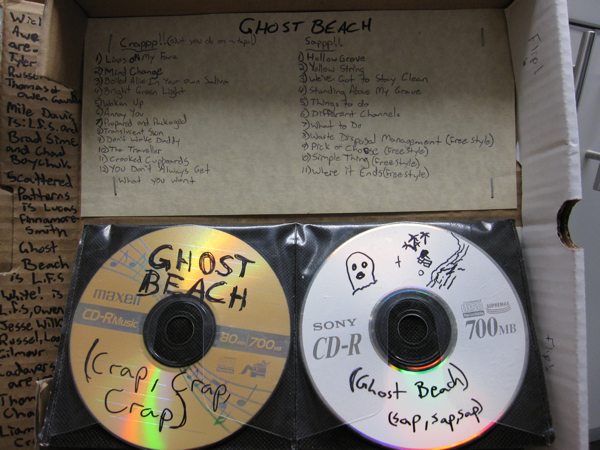 Wicl
Awe
are.
Tyler
Russel
Thomas &
Owen
Mile Davis
is L.F.S. and
Brad Sime
and Chad
Boychuk.
Scattered
Patterns
is Lucas
Annamore-
Smith
Ghost
Beach
is L.F.S
White! is
L.F.S, Owen
Jesse Wilk
Russel, Lee
Gilmour
Cadavers
are
Thom
Cha
Liam
Cr
GHOST BEACH
Crappp!!
1) Lines On My Face
2) Mind Change
3) Boiled Alive In Your Own Saliva
4) Bright Green Light
5) Woken Up
6) Annoy You
7) Prepared and Packaged
8) Translucent Skin
9) Don't Wake Daddy
10) The Traveller
11) Crooked Cupboards
12) You Don't Always Get
What you want
Sappp!!
1) Hollow Grave
2) Yellow String
3) We've Got To Stay Clean
4) Standing Above My Grave
5) Things to do
6) Different Channels
7) What to Do
8) Waste Disposal Management (free style)
9) Pick or Choose (free style)
10) Simple Thing (free style)
11) Where it Ends (free style)
Flip!
GHOST
BEACH
maxell
CD-R Music
80 min 700 MB
(Crap, Crap,
Crap)
+
SONY
CD-R
700MB
(Ghost Beach)
(sap, sap, sap)